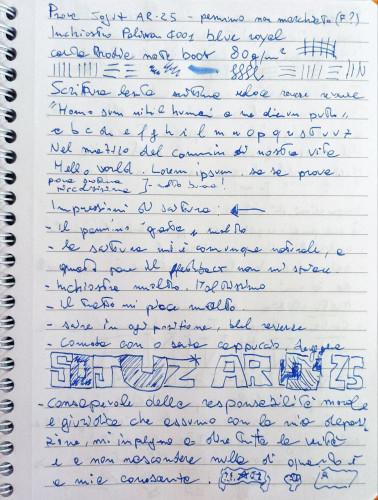 Prova Jojut AR-25 - pennino non marchiato (F?)
Inchiostro Pelikan 4001 blue royal
carta Rhodia note book 80g/m²
Scrittura lenta scrittura veloce reverse reverse
"Homo sum nihil humani a me alienum puto"
a b c d e f g h i l m n o p q r s t u v z
Nel mezzo del cammin di nostra vita
Hello world. Lorem ipsum. sa sa prova
prova scrittura
piccolissima } - molto buona!
Impressioni di scrittura: ←
- Il pennino gratta molto
- la scrittura mi è comunque naturale, e
questo pare il feedback non mi spiace.
- Inchiostro molto
- Il tratto mi piace molto
- scrive in ogni posizione, bel reverse
- Comoda con o senza cappuccio
AR 25
- consapevole della responsabilità morale
e giuridica che assumo con la mia deposi-
zione, mi impegno a dire tutta la verità
e a non nascondere nulla di quanto è
a mia conoscenza.